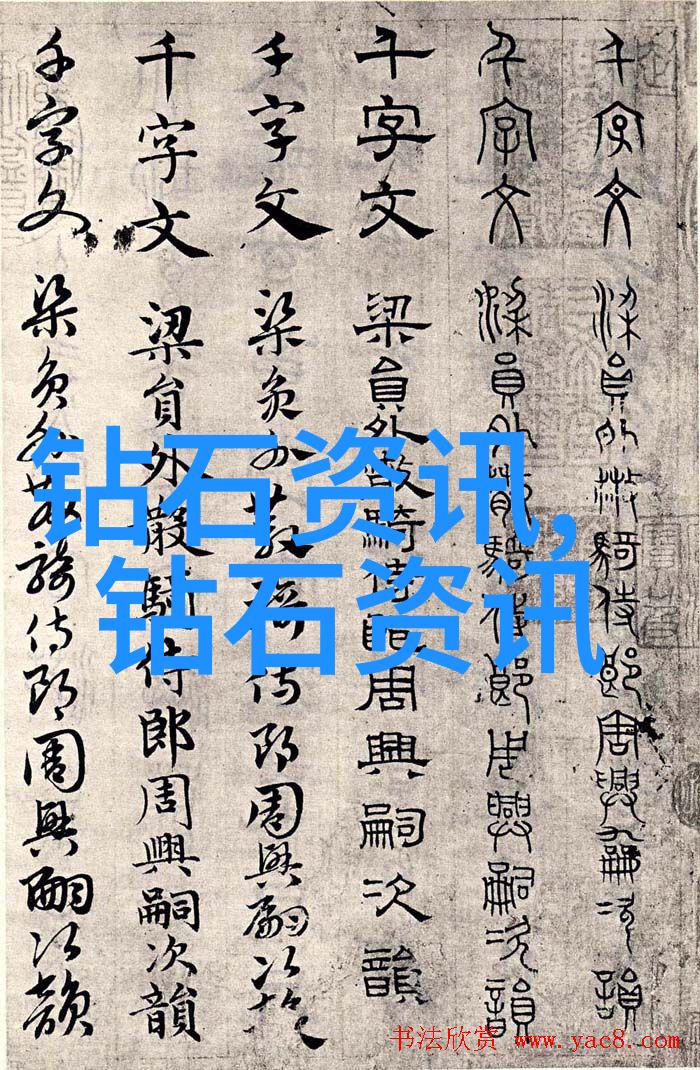 千字文 梁員外散騎侍郎周興嗣次韻
千字文 梁員外散騎侍郎周興嗣次韻
千字文 梁員外散騎侍郎周興嗣次韻
千字文 梁員外散騎侍郎周興嗣次韻
千字文 梁員外散騎侍郎周興嗣次韻
千字文 梁員外散騎侍郎周興嗣次韻
钻石资讯,
钻石资讯
书法欣赏 www.yac8.com